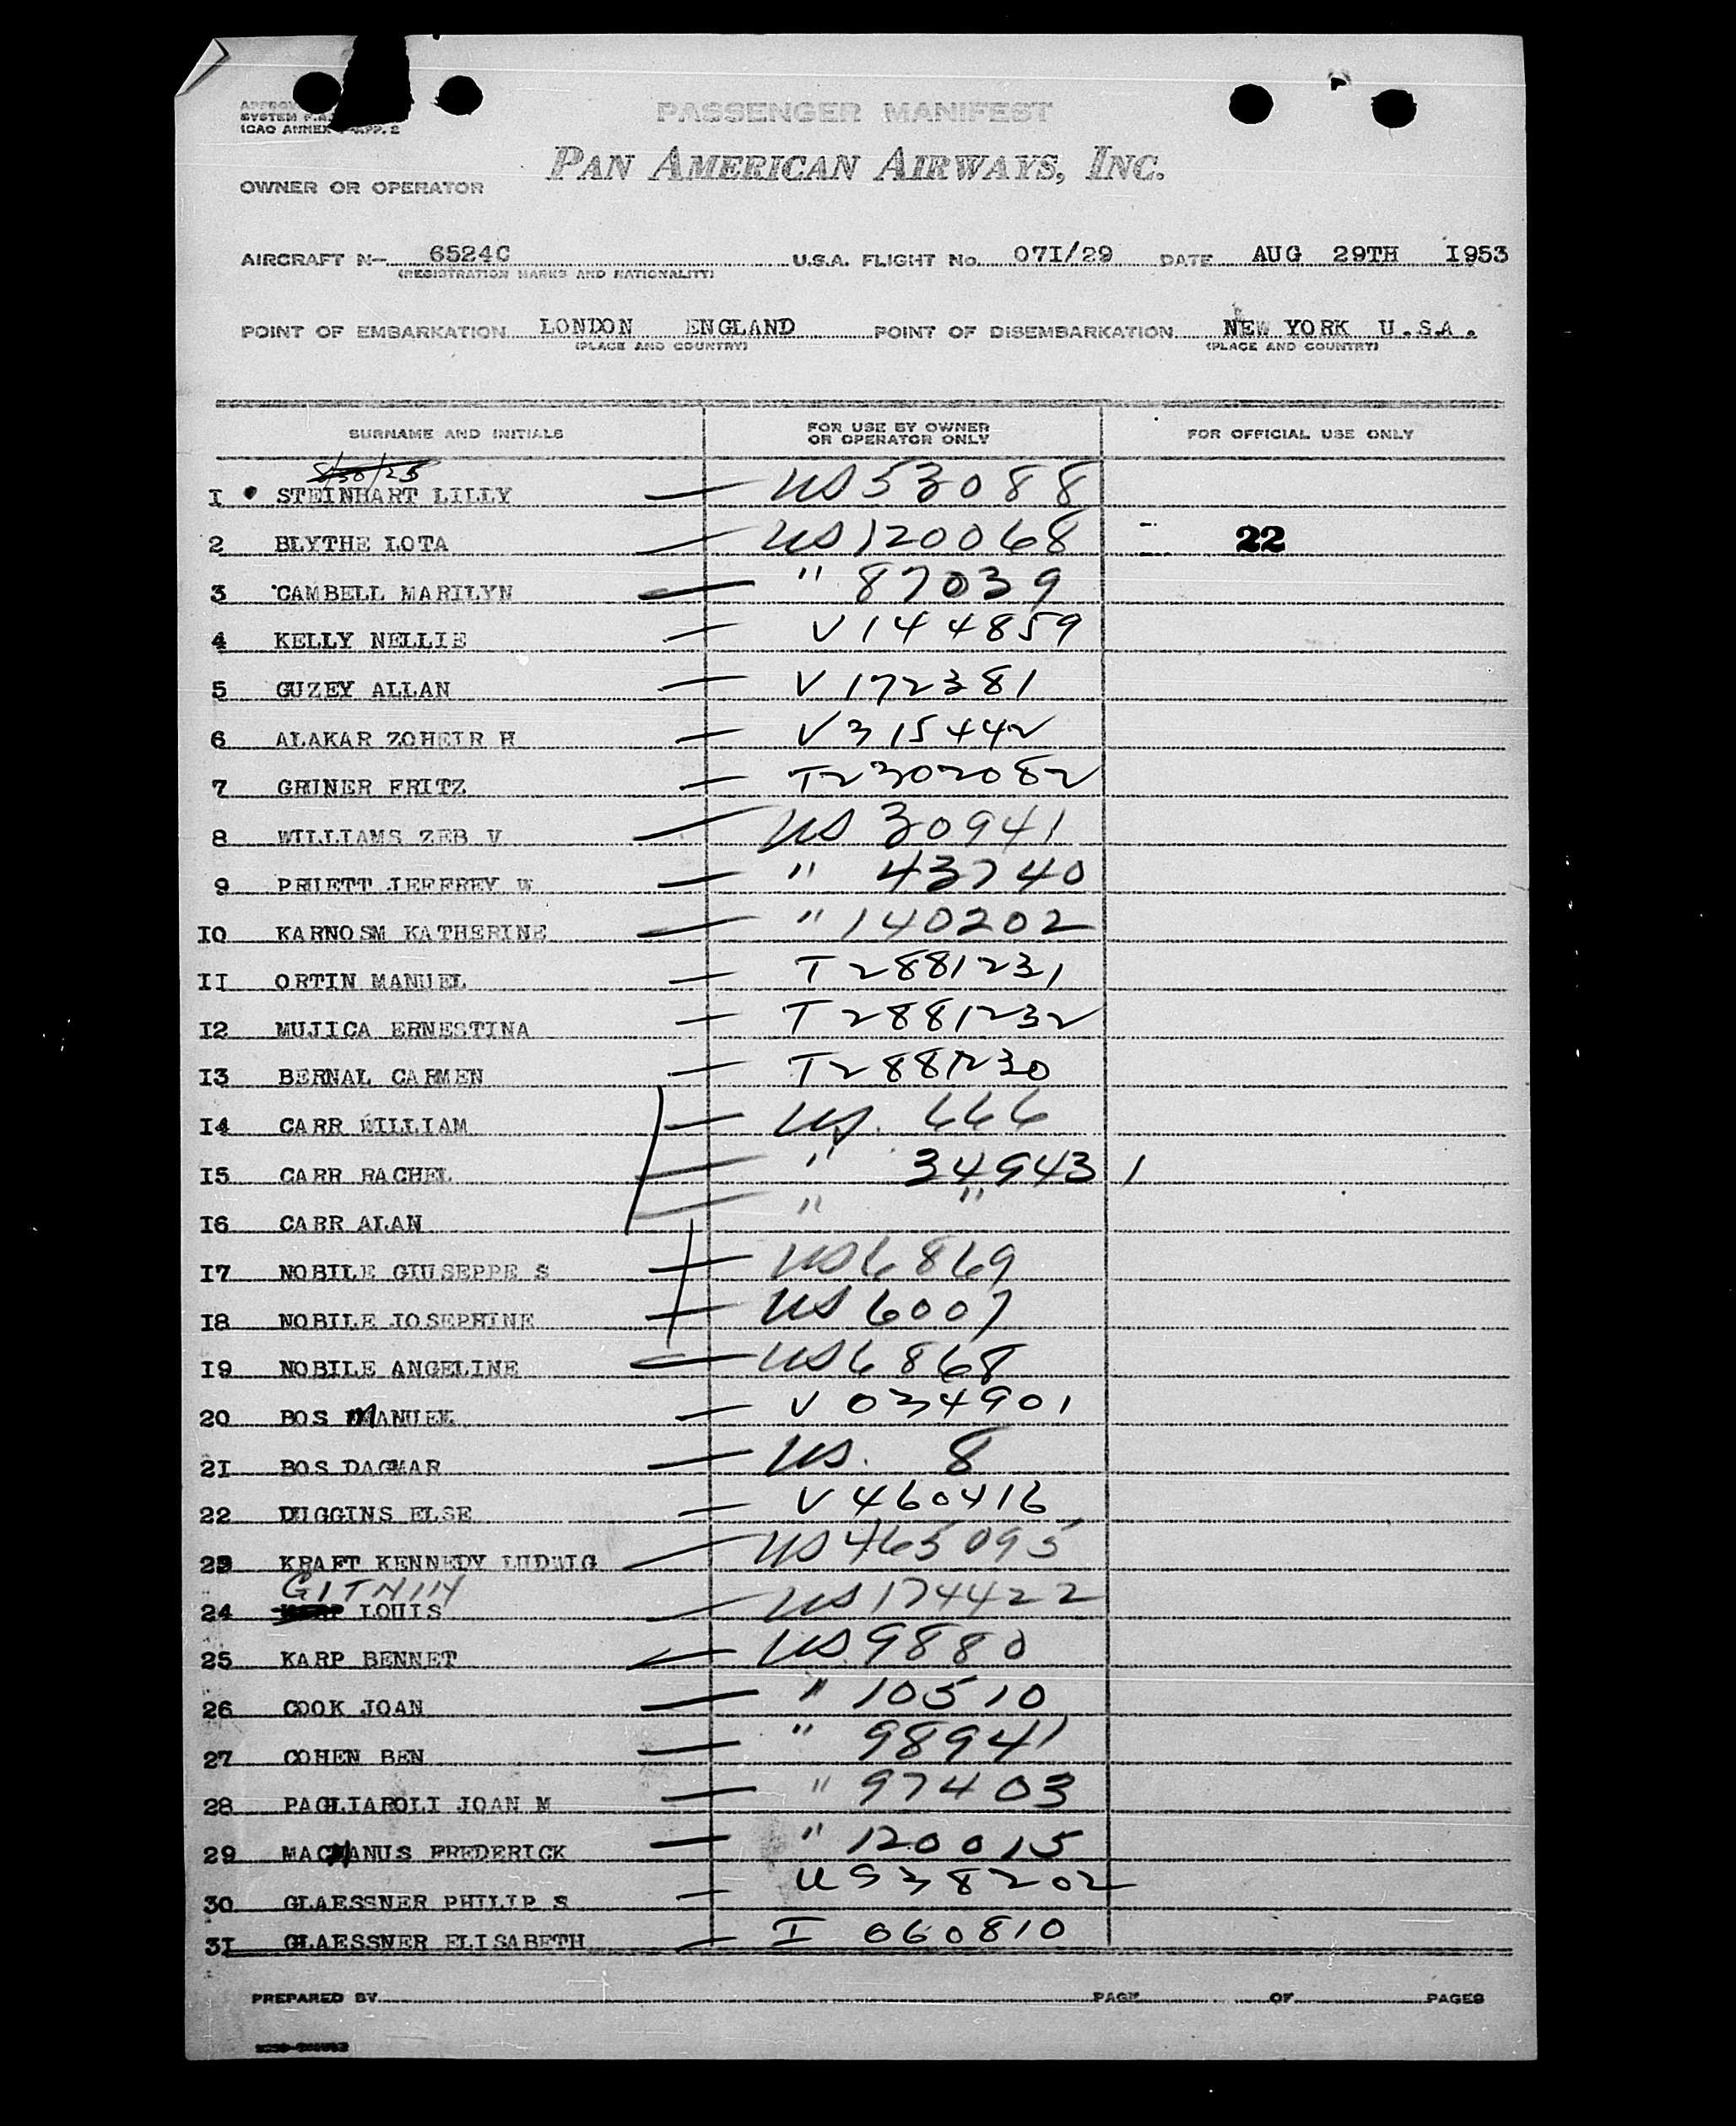 PASSENGER MANIFEST
SYSTEM
ICAO ANNEX APP. 2
PAN AMERICAN AIRWAYS, INC.
OWNER OR OPERATOR
AIRCRAFT N- 6524C U.S.A. FLIGHT No. 07I/29 DATE AUG 29TH I953
(REGISTRATION MARKS AND NATIONALITY)
POINT OF EMBARKATION LONDON ENGLAND POINT OF DISEMBARKATION NEW YORK U.S.A.
(PLACE AND COUNTRY) (PLACE AND COUNTRY)
SURNAME AND INITIALS FOR USE BY OWNER OR OPERATOR ONLY FOR OFFICIAL USE ONLY
I STEINHART LILLY US 53088
2 BLYTHE IOTA US 120068 22
3 CAMBELL MARILYN " 87039
4 KELLY NELLIE V 144859
5 GUZEY ALLAN V 172381
6 ALAKAR ZOHEIR H V 315442
7 GRUNER FRITZ T2302082
8 WILLIAMS ZEB V US 30941
9 PRUETT JEFFREY W " 43740
IO KARNOSM KATHERINE " 140202
II ORTIN MANUEL T 2881231
I2 MUJICA ERNESTINA T 2881232
I3 BERNAL CARMEN T2881230
I4 CARR WILLIAM US. 666
I5 CARR RACHEL " 34943 1
I6 CARR ALAN " "
I7 NOBILE GIUSEPPE S US 6869
I8 NOBILE JOSEPHINE US 6007
I9 NOBILE ANGELINE US 6868
20 BOS MANUEK V 034901
2I BOS DAGMAR US. 8
22 DUGGINS ELSE V 460416
23 KRAFT KENNEDY LUDWIG US 465095
24 LOUIS US 174422
25 KARP BENNET US 9880
26 COOK JOAN " 10510
27 COHEN BEN " 98941
28 PAGLIAROLI JOAN M " 97403
29 MACMANUS FREDERICK " 120015
30 GLAESSNER PHILIP S US 38202
3I GLAESSNER ELISABETH I 060810
PREPARED BY PAGE OF PAGES